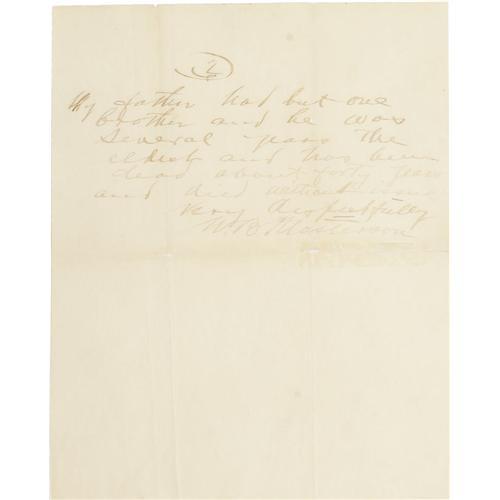 2
My father had but one
brother and he was
several years the
eldest and has been
dead about forty years
and died without issue
very respectfully
W. B. Masterson